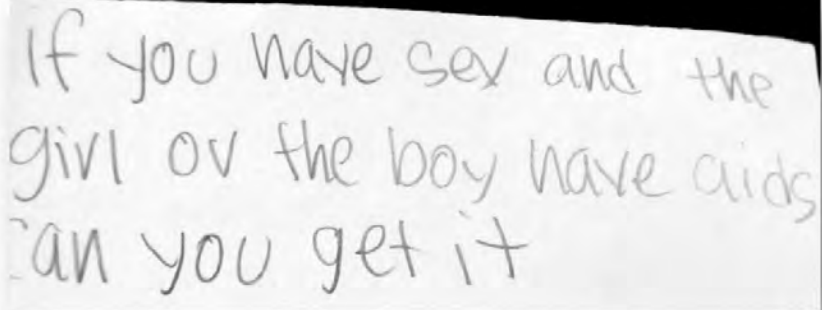 If you have sex and the
girl or the boy have aids
can you get it